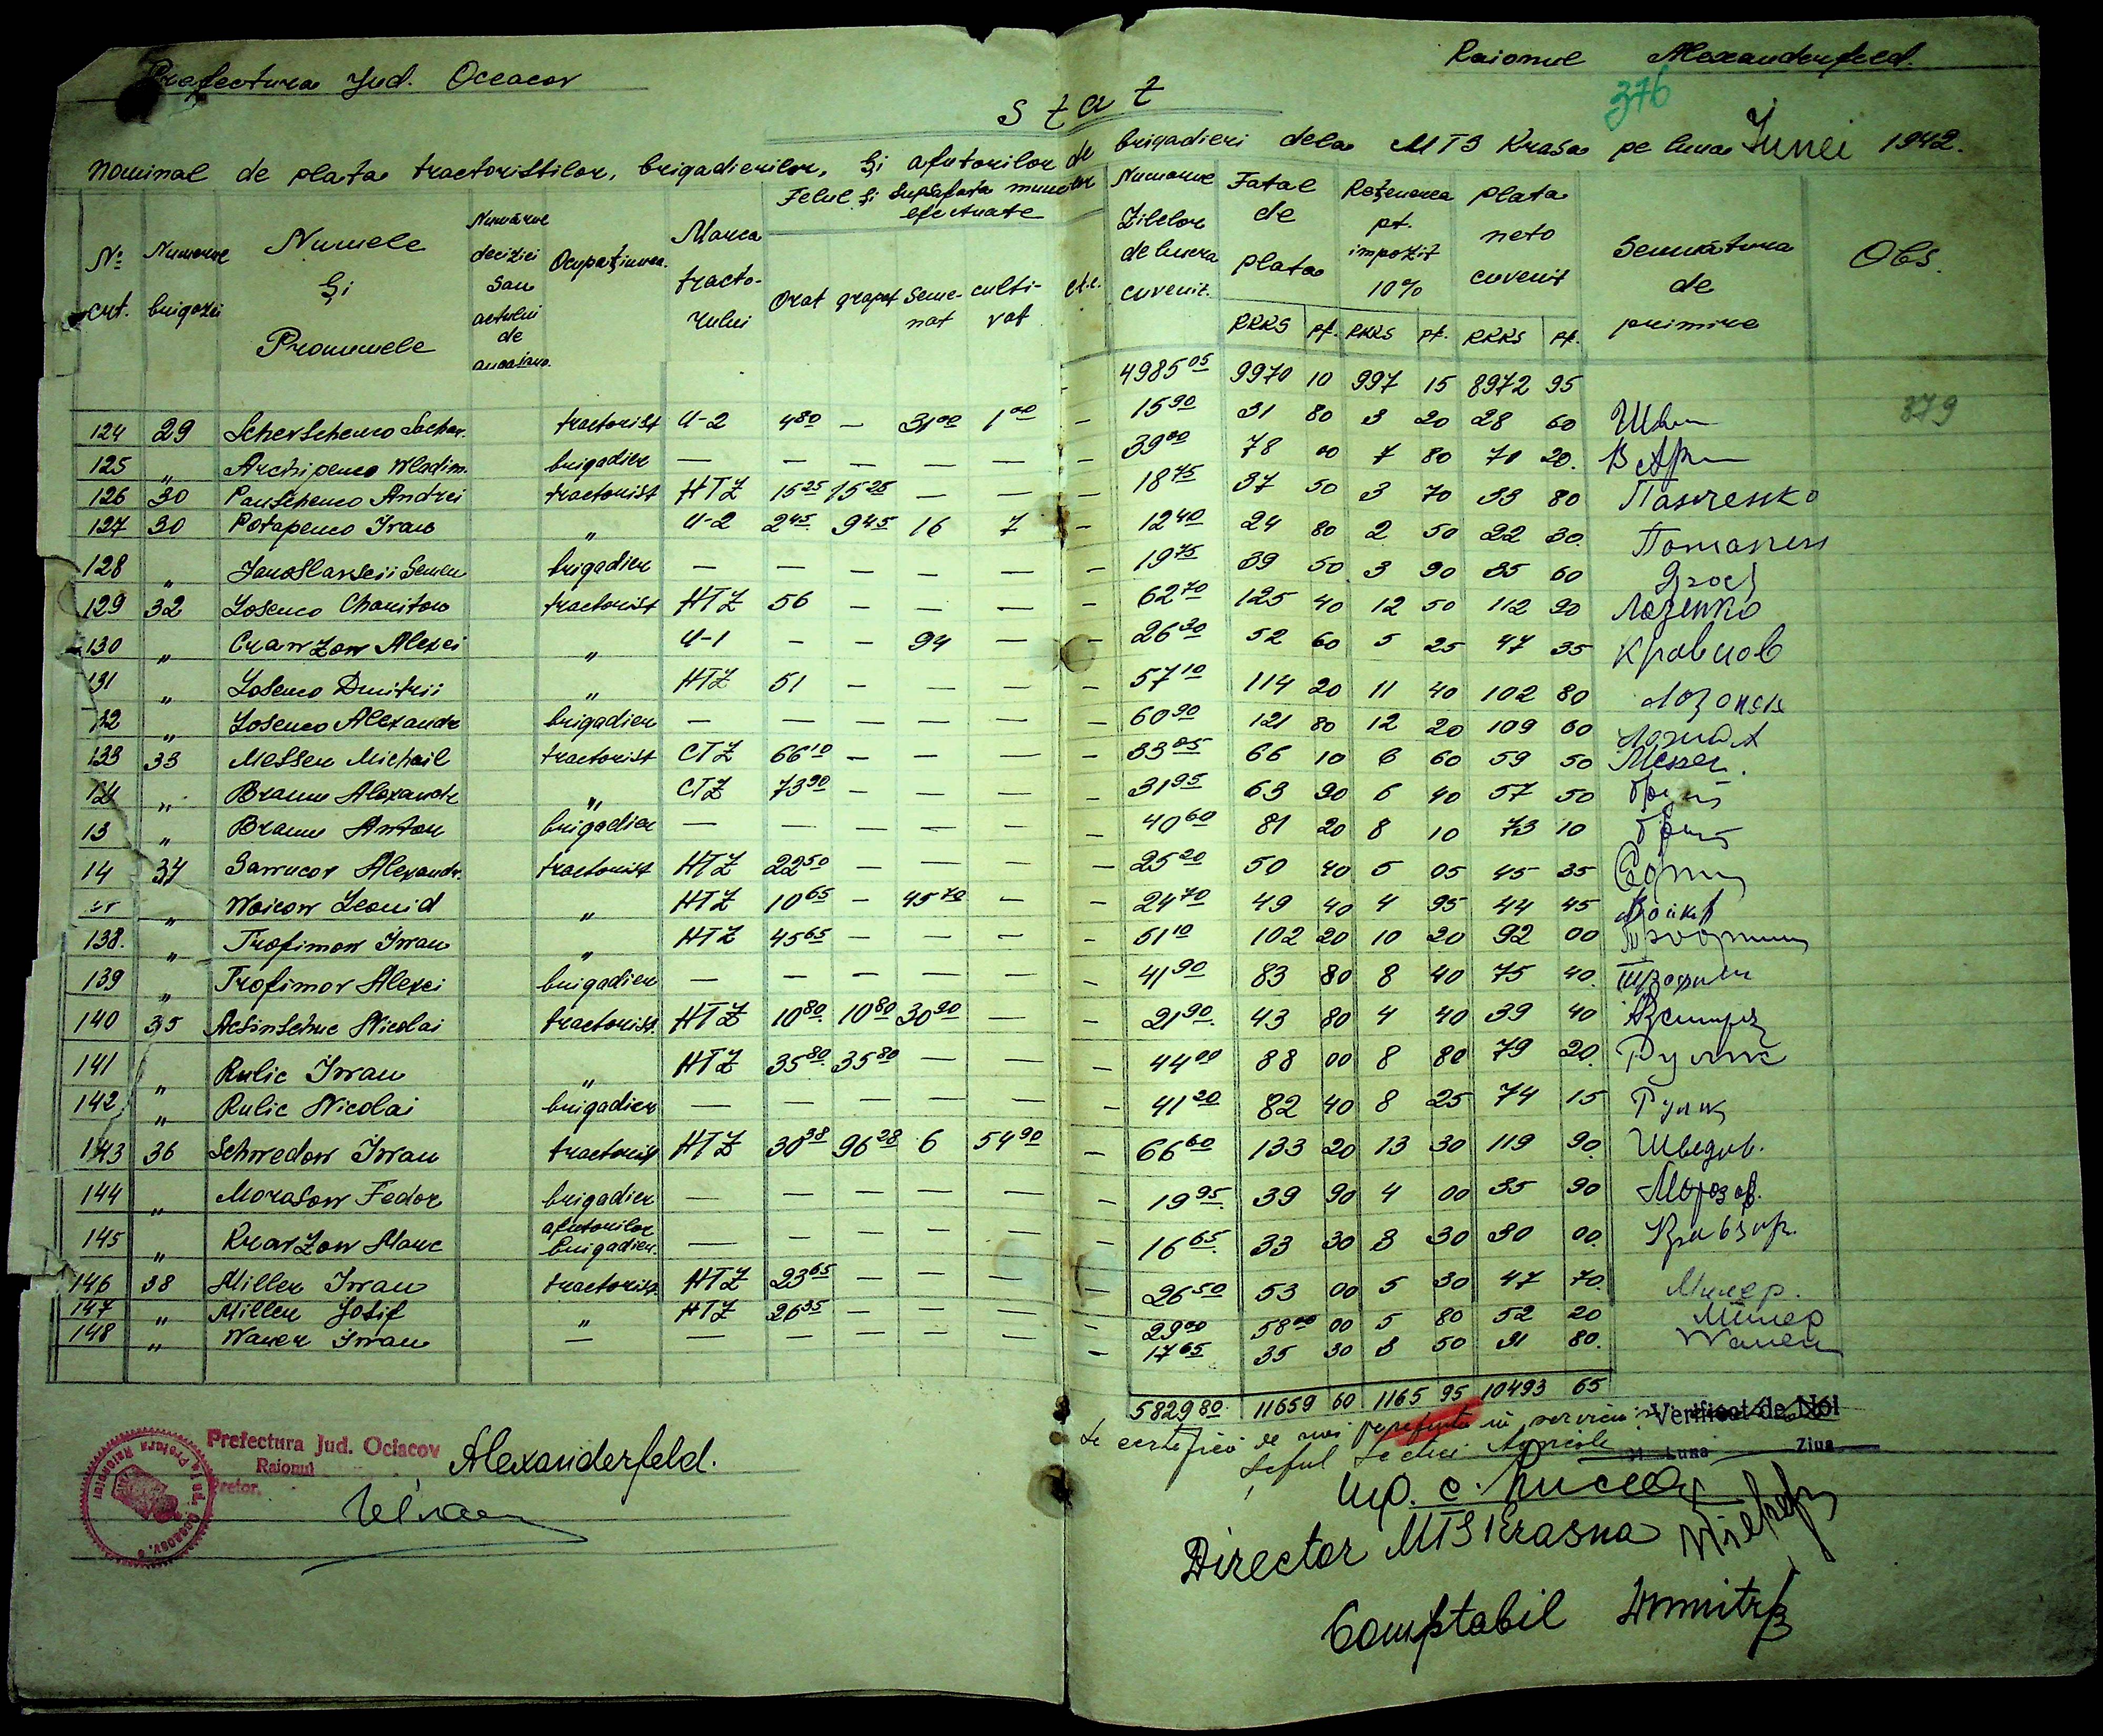 Prefectura Jud. Oceacov
Raionul Alexanderfeld.
376
Stat
Nominal de plata tractoristilor, brigadierilor, și ajutorilor de brigadieri dela MTS Krasa pe luna Iunei 1942.
No crt. Numarue brigazei Numele și Pronumele Numărue deciziei sau actului de Ocupațiunea Marca tractorului Felul și Suprafata muncilor efectuate Orat grapat Seme-nat culti-vat etc. Numarue Zilelor de lucru cuvenit. Fatal de plata Rețenerea pt. impozit 10% plata neto cuvenit Semnătura de primire Obs.
RKKS pf. RKKS pf. RKKS pf.
4985 05 9970 10 997 15 8972 95
124 29 Scherschenco Sachar. tractorist U-2 4 80 — 31 00 1 00 — 15 90 31 80 3 20 28 60 379
125 „ Archipenco Wladim. brigadier — — — — — — 39 00 78 00 7 80 70 20.
126 30 Pantschenco Andrei tractorist HTZ 15 25 15 25 — — — 18 75 37 50 3 70 33 80 Панченко
127 30 Potapenco Iwan „ U-2 2 45 9 45 16 7 — 12 40 24 80 2 50 22 30.
128 „ Jaroslawscii Semen brigadier — — — — — — 19 75 39 50 3 90 35 60
129 32 Losenco Chariton tractorist HTZ 56 — — — — 62 70 125 40 12 50 112 90 Лозенко
130 „ Crawzow Alexei „ U-1 — — 94 — — 26 30 52 60 5 25 47 35 Кравцов
131 „ Losenco Dmitrii „ HTZ 51 — — — — 57 10 114 20 11 40 102 80
132 „ Losenco Alexandr brigadier — — — — — — 60 90 121 80 12 20 109 60
133 33 Messer Michail tractorist CTZ 66 10 — — — — 33 05 66 10 6 60 59 50 Месер.
„ Braun Alexandr „ CTZ 73 90 — — — — 31 95 63 90 6 40 57 50
13 „ Braun Anton brigadier — — — — — — 40 60 81 20 8 10 73 10
14 34 Sawucov Alexandr. tractorist HTZ 22 50 — — — — 25 20 50 40 5 05 45 35
„ Woicow Leonid „ HTZ 10 65 — 45 70 — — 24 70 49 40 4 95 44 45
138. „ Trofimow Iwan „ HTZ 45 65 — — — — 51 10 102 20 10 20 92 00
139 „ Trofimov Alexei brigadier — — — — — — 41 90 83 80 8 40 75 40.
140 35 Acsintschuc Nicolai tractorist HTZ 10 80 10 80 30 90 — — 21 90 43 80 4 40 39 40
141 „ Rulic Iwan „ HTZ 35 80 35 80 — — — 44 00 88 00 8 80 79 20. Рулик
142 „ Rulic Nicolai brigadier — — — — — — 41 20 82 40 8 25 74 15 Рулик
143 36 Schwedow Iwan tractorist HTZ 30 38 96 28 6 54 90 — 66 60 133 20 13 30 119 90 Шведов.
144 „ Morasow Fedor brigadier — — — — — — 19 95 39 90 4 00 35 90 Морозов.
145 „ Krawzow Marc ajutorilor brigadier. — — — — — — 16 65 33 30 3 30 30 00.
146 38 Miller Iwan tractorist HTZ 23 65 — — — — 26 50 53 00 5 30 47 70. Милер.
147 „ Miller Josif „ HTZ 26 35 — — — — 29 00 58 00 00 5 80 52 20 Милер
148 „ Waner Iwan — — — — — — — 17 65 35 30 3 50 31 80. Waner
5829 80 11659 60 1165 95 10493 65
Se certifică de noi
Verificat de Noi
Șeful Secției Agricole
Luna Ziua
Prefectura Jud. Ociacov
Raionul Alexanderfeld.
Pretor,
Ing. C.
Director MTS Krasna
Comptabil Dumitru